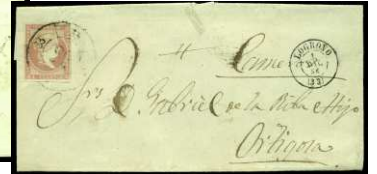 LOGROÑO
Came
Srs D. Gabriel de la Riba e Hijo
Ortigosa